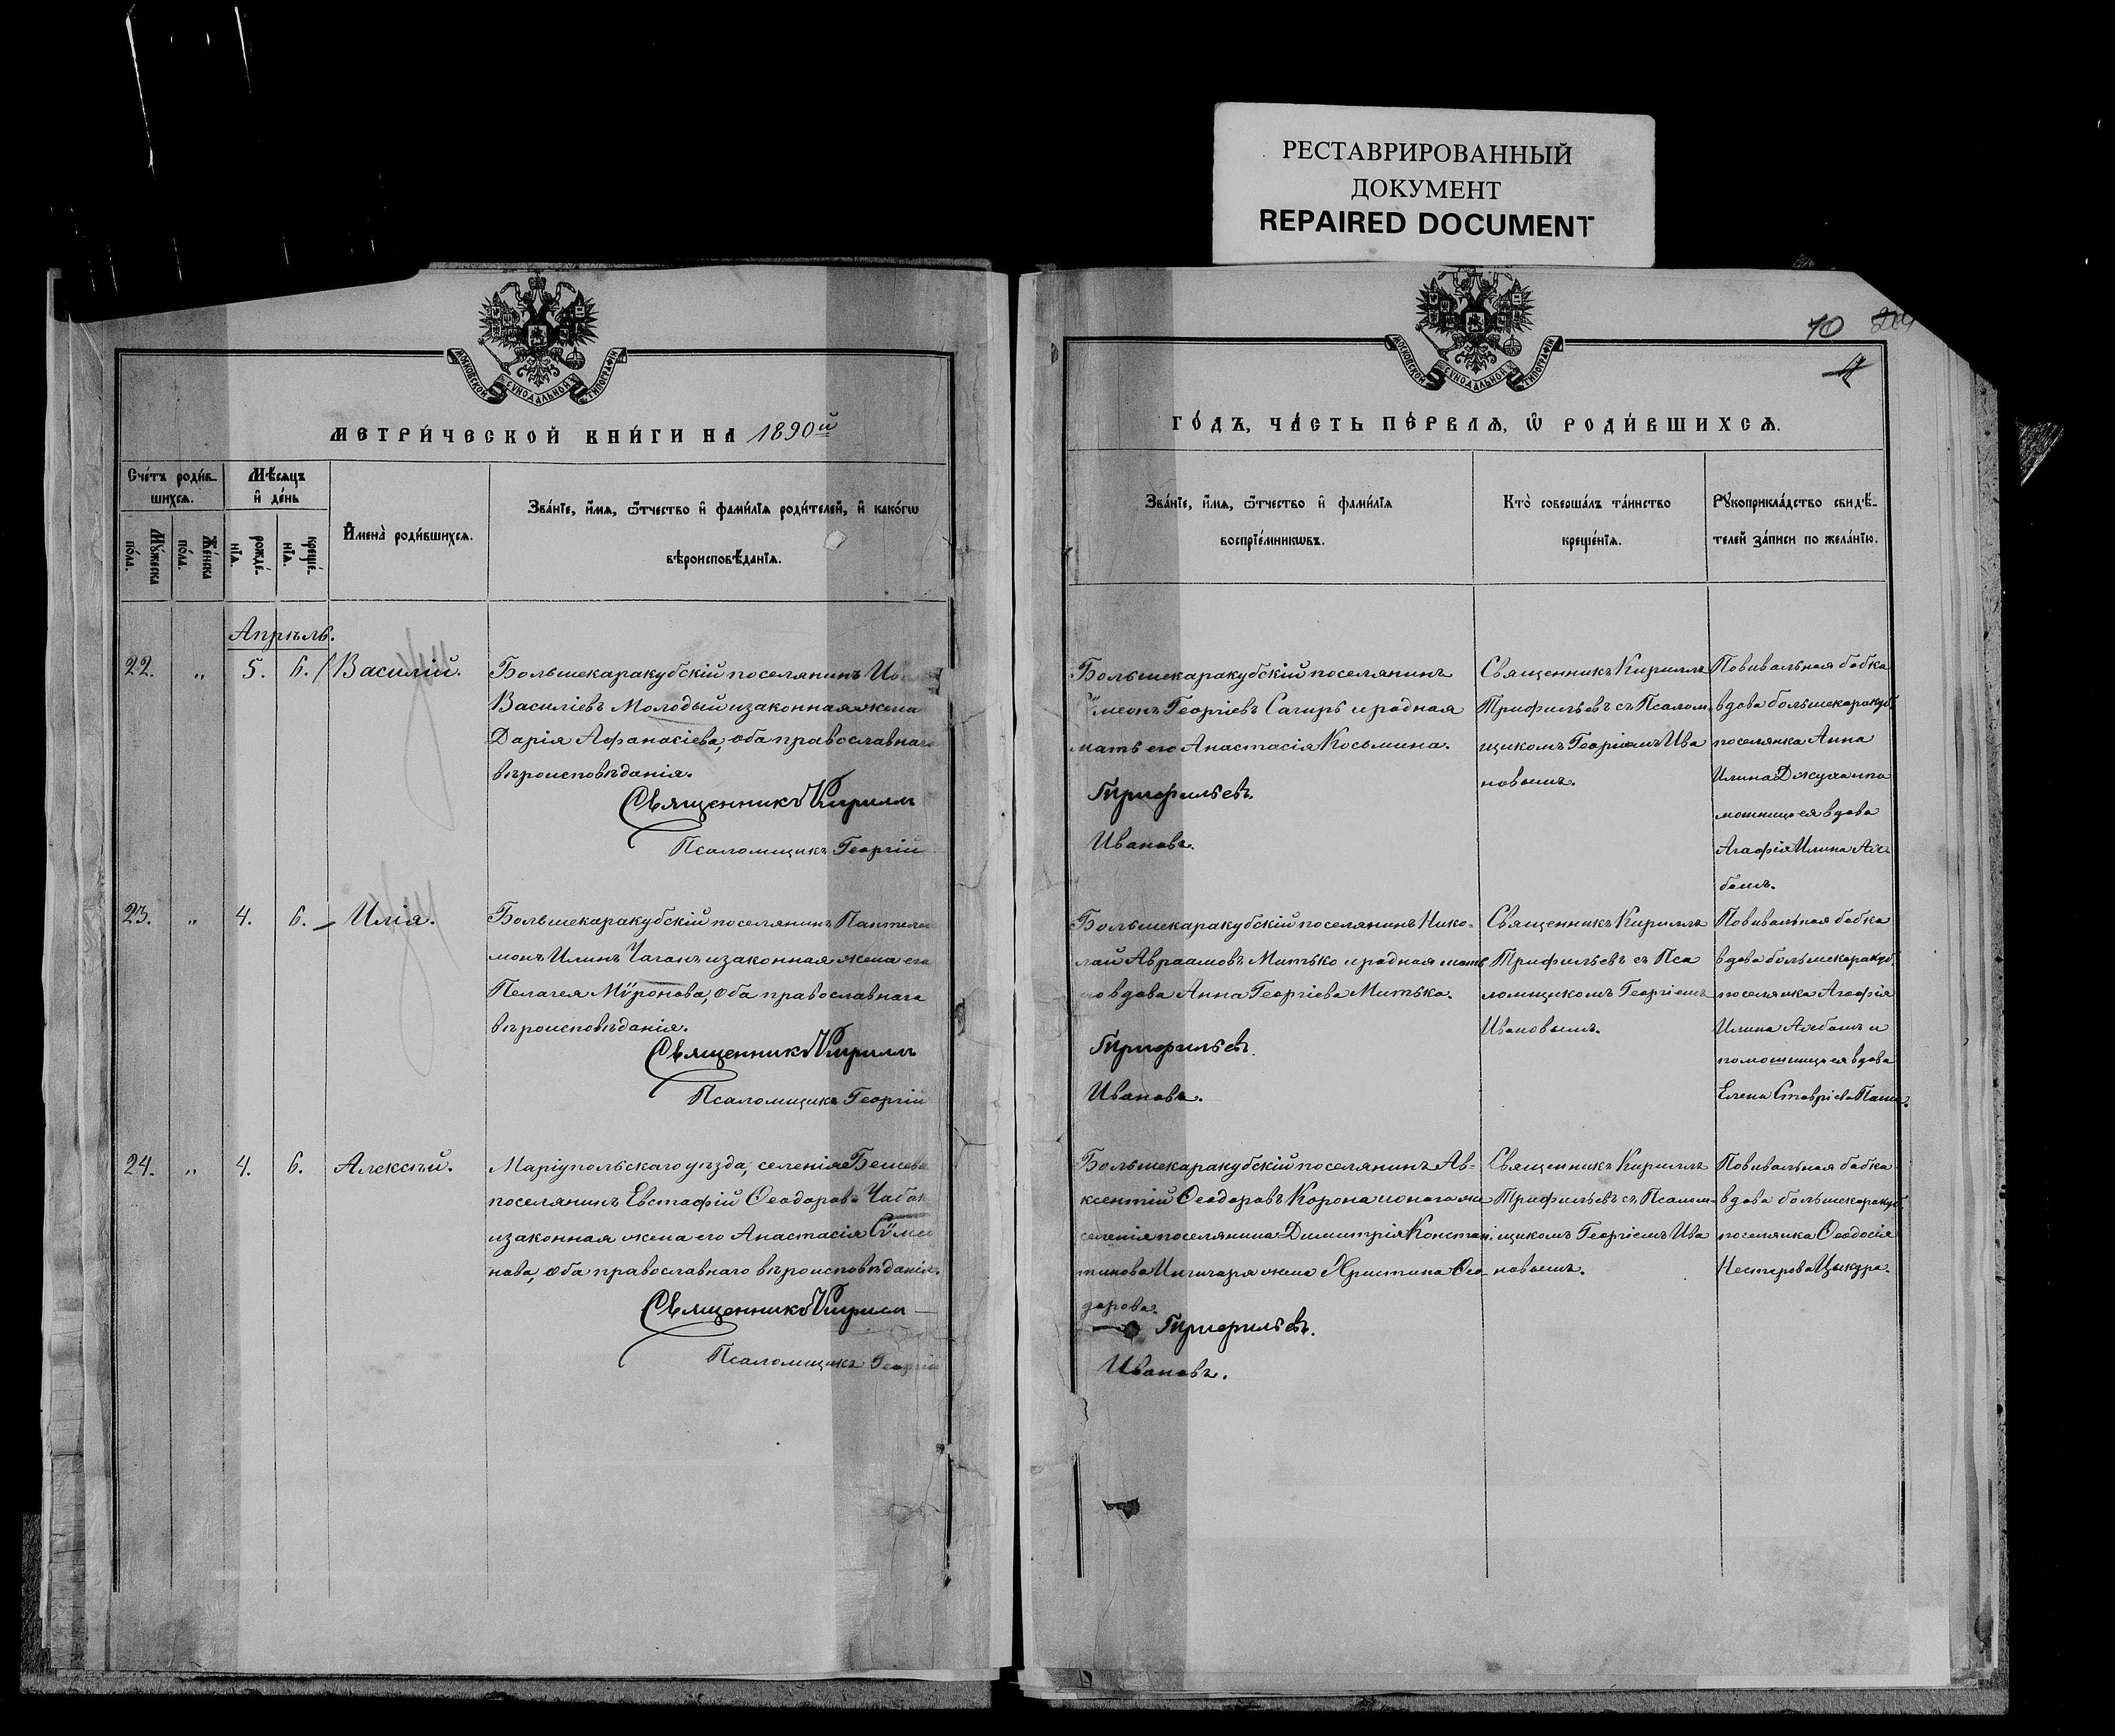 РЕСТАВРИРОВАННЫЙ
ДОКУМЕНТ
REPAIRED DOCUMENT
МОСКОВСКОЙ СѴНОДАЛЬНОЙ ТИПОГРАФІИ
МЕТРИ́ЧЕСКОЙ КНИ́ГИ НА 1890й
Сче́тъ роди́в-
шихсѧ.
Мѣ́сѧцъ
и҆ де́нь
Мꙋ́жеска
по́ла.
Же́нска
по́ла.
рожде́-
нїѧ.
креще́-
нїѧ.
И҆мена̀ роди́вшихсѧ.
Зва́нїе, и҆́мѧ, ѻ҆́тчество и҆ фами́лїѧ роди́телей, и҆ како́гѡ
вѣроисповѣ́данїѧ.
Апрѣль.
22. „ 5. 6. Василій.
Большекаракубскій поселянинъ
Василіевъ Молодый и законная жена
Дарія Афанасіева, оба православнаго
вѣроисповѣданія.
Священникъ Кириллъ
Псаломщикъ Георгій
23. „ 4. 6. Илія.
Большекаракубскій поселянинъ Пантелеи
монъ Илинъ Чаганъ и законная жена его
Пелагея Мѵронова, оба православнаго
вѣроисповѣданія.
Священникъ Кириллъ
Псаломщикъ Георгій
24. „ 4. 6. Алексѣй.
Маріупольскаго уѣзда, селенія Бешева
поселянинъ Евстафій Ѳеодоровъ
и законная жена его Анастасія Сѵмео
нова, оба православнаго вѣроисповѣданія.
Священникъ Кириллъ
Псаломщикъ Георгій
10
МОСКОВСКОЙ СѴНОДАЛЬНОЙ ТИПОГРАФІИ
ГО́ДЪ, ЧА́СТЬ ПЕ́РВАѦ, Ѡ҆ РОДИ́ВШИХСѦ.
Зва́нїе, и҆́мѧ, ѻ҆́тчество и҆ фами́лїѧ
воспрїе́мникѡвъ.
Кто̀ соверша́лъ та́инство
креще́нїѧ.
Рꙋкоприкла́дство свидѣ́-
телей за́писи по жела́нїю.
Большекаракубскій поселянинъ
Сѵмеонъ Георгіевъ Сагиръ и родная
мать его Анастасія Косьмина.
Трифильевъ.
Ивановъ.
Священникъ Кириллъ
Трифильевъ съ Псалом-
щикомъ Георгіемъ Ива
новымъ.
Повивальная бабка
вдова большекаракуб.
поселянка Анна
Илина
мошница ея вдова
Агафія Илина
Большекаракубскій поселянинъ Нико-
лай Авраамовъ Митько и родная мать
его вдова Анна Георгіева Митько.
Трифильевъ.
Ивановъ.
Священникъ Кириллъ
Трифильевъ съ Пса
ломщикомъ Георгіемъ
Ивановымъ.
Повивальная бабка
вдова большекаракуб.
поселянка Агафія
Илина и
помошница ея вдова
Елена Ставріева
Большекаракубскій поселянинъ Ав-
ксентій Ѳеодоровъ Корона и онаго же
селенія поселянина Димитрія Констан
тинова жена Христина Ѳео-
дорова.
Трифильевъ.
Ивановъ.
Священникъ Кириллъ
Трифильевъ съ Псалом-
щикомъ Георгіемъ Ива
новымъ.
Повивальная бабка
вдова большекаракуб.
поселянка Ѳеодосія
Нестерова